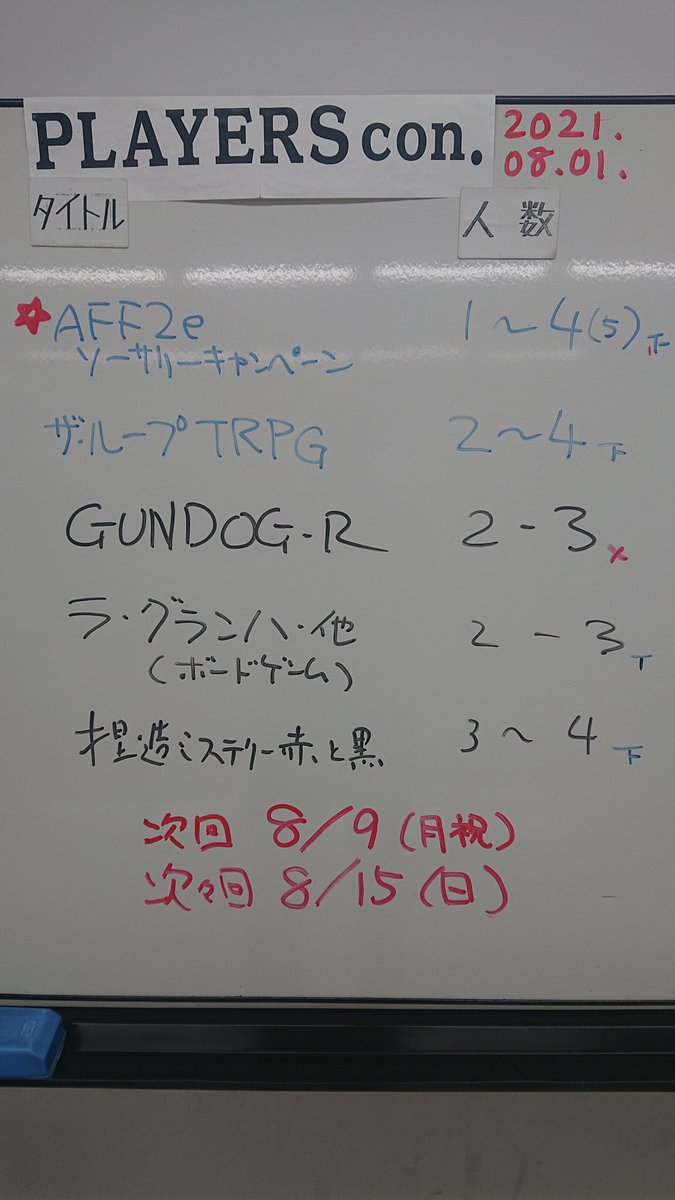 PLAYERS con. 2021.
08.01.
タイトル 人数
☆AFF2e 1～4(5)正
ソーサリーキャンペーン
ザ・ループTRPG 2～4 下
GUNDOG-R 2-3 ×
ラ・グランハ・他 2-3 T
(ボードゲーム)
捏造ミステリー赤と黒 3～4 下
次回 8/9(月祝)
次々回 8/15(日)